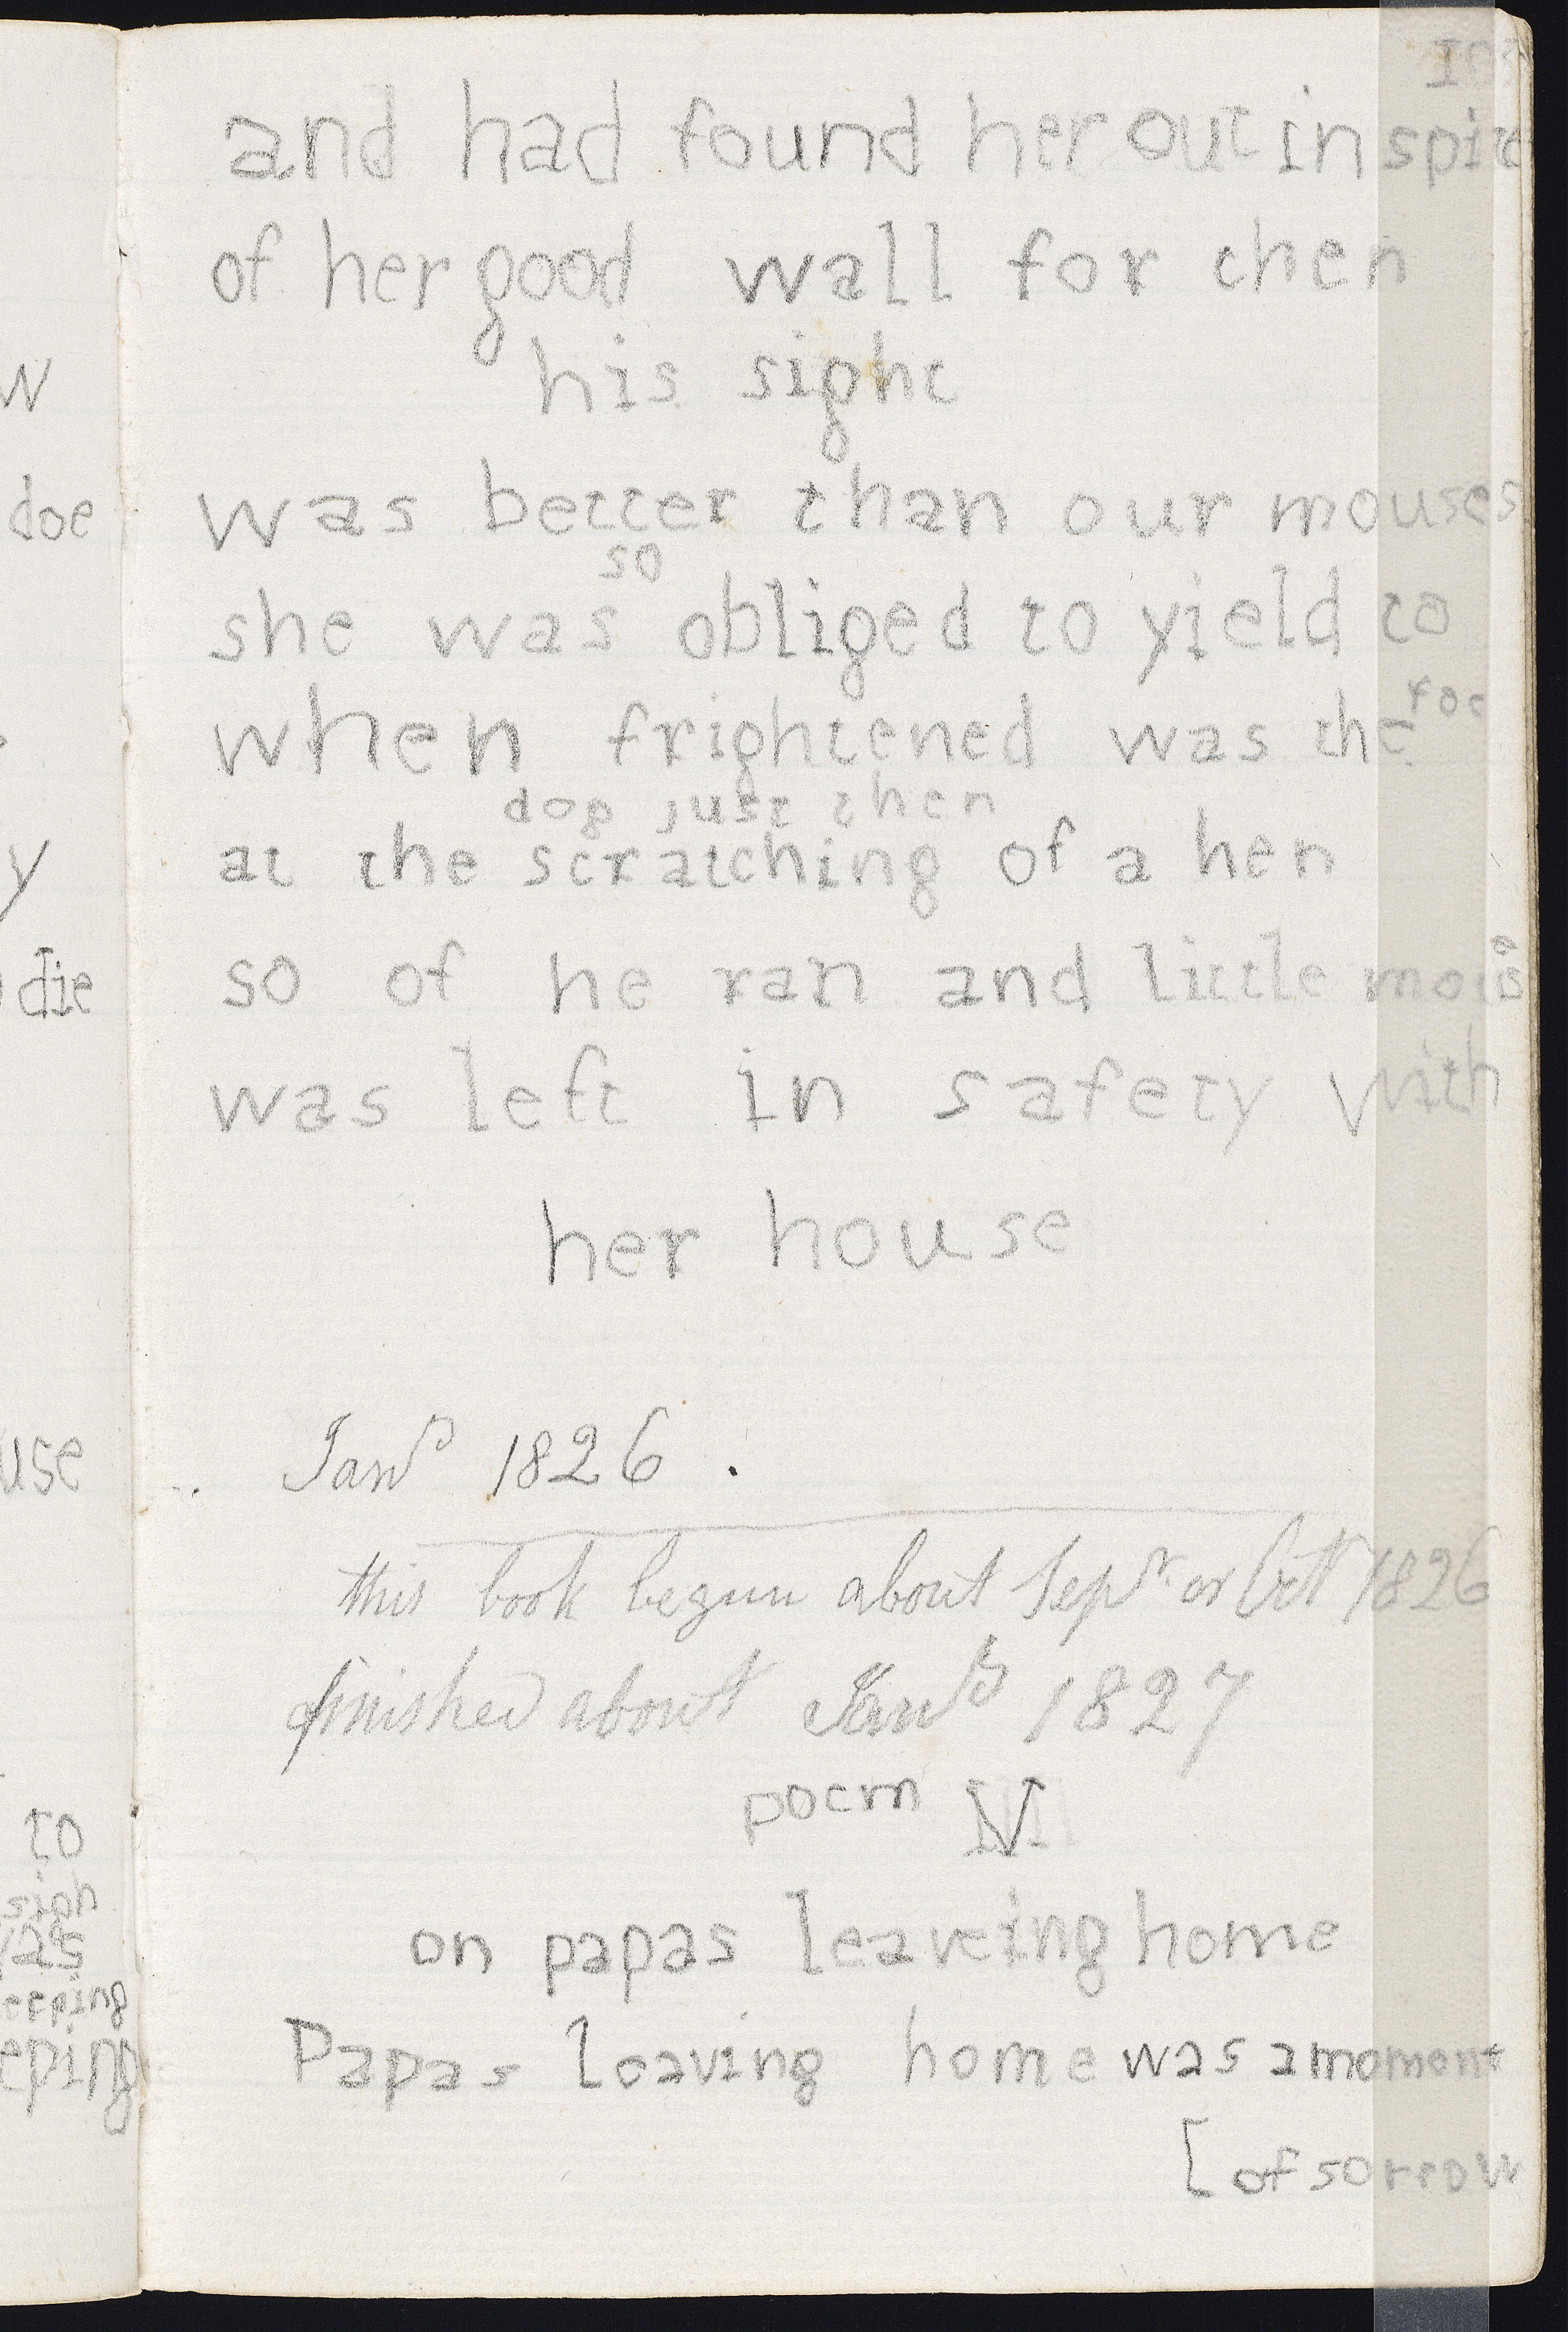 and had found her out in spite
of her good wall for then
his sight
was better than our mouses
so
she was obliged to yield to
foe
when frightened was the
dog just then
at the scratching of a hen
so of he ran and little mouse
was left in safety with
her house
Jany 1826
this book begun about Sepr or Octr 1826
finished about Jany 1827
poem IV
on papas leaveing home
Papas leaving home was a moment
[of sorrow
w
doe
y
die
use
to
sigh
as
eeping
eping